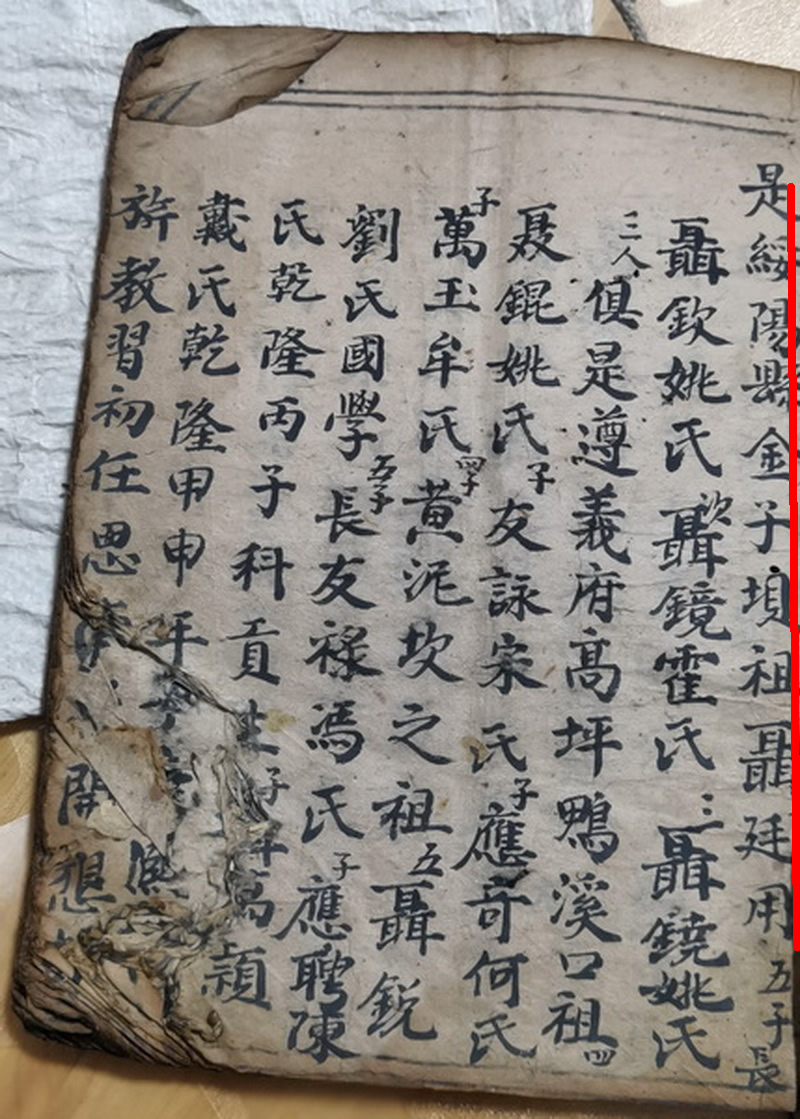 是綏陽縣金子垻祖聶廷用五子長
聶欽姚氏次聶鏡霍氏三聶鐃姚氏
三人俱是遵義府高坪鴨溪口祖四
聂錕姚氏子友詠宋氏子應奇何氏
子萬玉牟氏四子黄泥坎之祖五聶銳
劉氏國學五子長友祿馮氏子應聘陳
氏乾隆丙子科貢生子萬頴
戴氏乾隆甲申年
旂教習初任思開懇